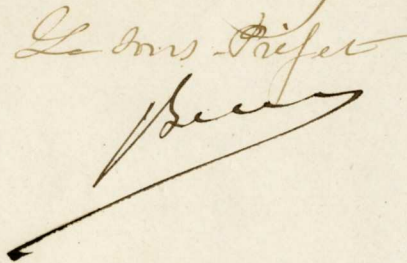 Le Sous-Préfet